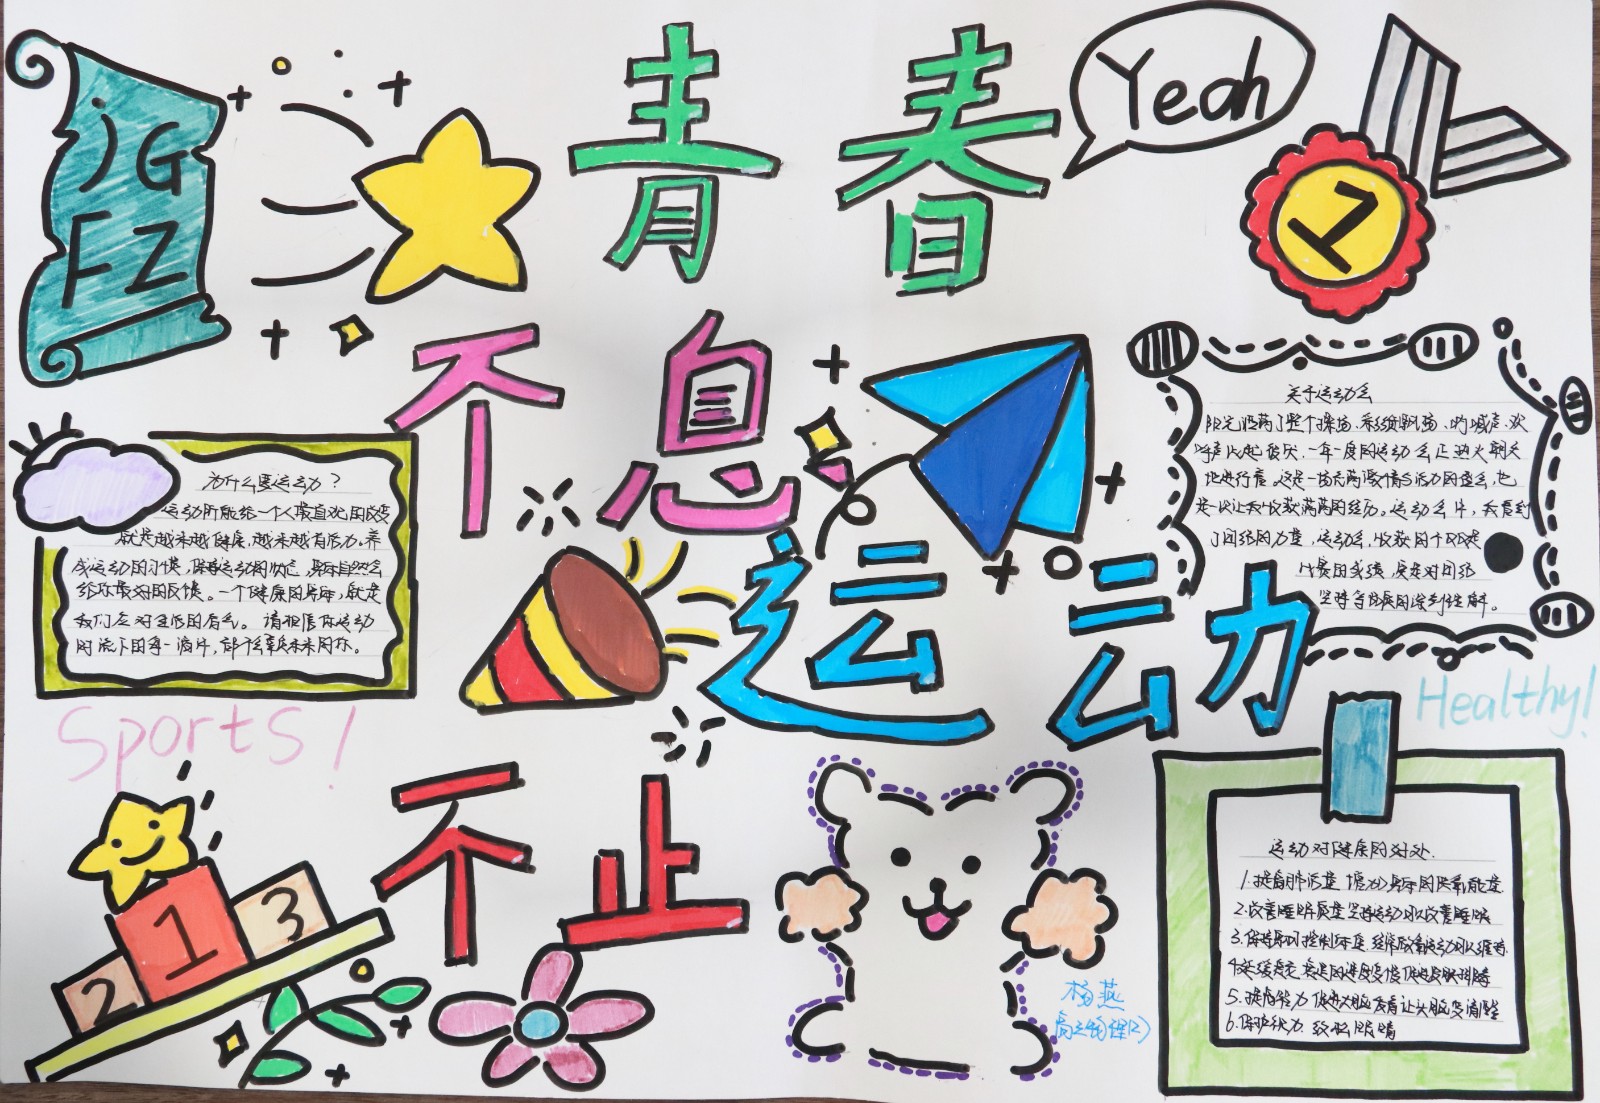 JG
FZ
青春
Yeah
1
不息
关于运动会
阳光洒满了整个操场,彩旗飘扬,呐喊声、欢
呼声此起彼伏,一年一度的运动会正热火朝天
地进行着。这是一场充满激情与活力的盛会,也
是一次让我收获满满的经历。运动会中,我看到
了团结的力量,运动会,收获的不仅是
比赛的成绩,更是对团结
坚持等的深刻理解。
为什么要运动?
运动所能给一个人最直观的改变
就是越来越健康,越来越有活力。养
成运动的习惯,保持运动的状态,身体自然会
给你最好的反馈。一个健康的身体,就是
我们应对生活的底气。请相信你运动
时流下的每一滴汗,都会未来的你。
运动
Sports!
Healthy!
不止
1
2
3
运动对健康的好处.
1.提高肺活量 增加身体的供氧能量
2.改善睡眠质量 坚持运动可以改善睡眠
3.保持身材控制体重 经常做有氧运动可以维持
4.延缓衰老
5.提高智力 促进大脑发育让头脑变清醒
6.保护视力 放松眼睛
杨燕
高二物理(2)